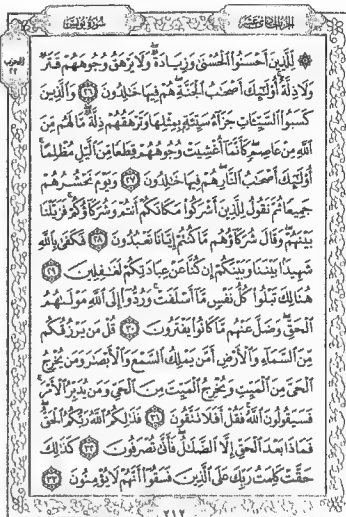 الجزء الحادي عشر سورة يونس
الحزب ٢٢
۞ لِّلَّذِينَ أَحْسَنُوا۟ ٱلْحُسْنَىٰ وَزِيَادَةٌ ۖ وَلَا يَرْهَقُ وُجُوهَهُمْ قَتَرٌ
وَلَا ذِلَّةٌ ۚ أُو۟لَٰٓئِكَ أَصْحَٰبُ ٱلْجَنَّةِ ۖ هُمْ فِيهَا خَٰلِدُونَ ٢٦ وَٱلَّذِينَ
كَسَبُوا۟ ٱلسَّيِّـَٔاتِ جَزَآءُ سَيِّئَةٍۭ بِمِثْلِهَا وَتَرْهَقُهُمْ ذِلَّةٌ ۖ مَّا لَهُم مِّنَ
ٱللَّهِ مِنْ عَاصِمٍ ۖ كَأَنَّمَآ أُغْشِيَتْ وُجُوهُهُمْ قِطَعًا مِّنَ ٱلَّيْلِ مُظْلِمًا ۚ
أُو۟لَٰٓئِكَ أَصْحَٰبُ ٱلنَّارِ ۖ هُمْ فِيهَا خَٰلِدُونَ ٢٧ وَيَوْمَ نَحْشُرُهُمْ
جَمِيعًا ثُمَّ نَقُولُ لِلَّذِينَ أَشْرَكُوا۟ مَكَانَكُمْ أَنتُمْ وَشُرَكَآؤُكُمْ ۚ فَزَيَّلْنَا
بَيْنَهُمْ ۖ وَقَالَ شُرَكَآؤُهُم مَّا كُنتُمْ إِيَّانَا تَعْبُدُونَ ٢٨ فَكَفَىٰ بِٱللَّهِ
شَهِيدًۢا بَيْنَنَا وَبَيْنَكُمْ إِن كُنَّا عَنْ عِبَادَتِكُمْ لَغَٰفِلِينَ ٢٩
هُنَالِكَ تَبْلُوا۟ كُلُّ نَفْسٍ مَّآ أَسْلَفَتْ ۚ وَرُدُّوٓا۟ إِلَى ٱللَّهِ مَوْلَىٰهُمُ
ٱلْحَقِّ ۖ وَضَلَّ عَنْهُم مَّا كَانُوا۟ يَفْتَرُونَ ٣٠ قُلْ مَن يَرْزُقُكُم
مِّنَ ٱلسَّمَآءِ وَٱلْأَرْضِ أَمَّن يَمْلِكُ ٱلسَّمْعَ وَٱلْأَبْصَٰرَ وَمَن يُخْرِجُ
ٱلْحَىَّ مِنَ ٱلْمَيِّتِ وَيُخْرِجُ ٱلْمَيِّتَ مِنَ ٱلْحَىِّ وَمَن يُدَبِّرُ ٱلْأَمْرَ ۚ
فَسَيَقُولُونَ ٱللَّهُ ۚ فَقُلْ أَفَلَا تَتَّقُونَ ٣١ فَذَٰلِكُمُ ٱللَّهُ رَبُّكُمُ ٱلْحَقُّ ۖ
فَمَاذَا بَعْدَ ٱلْحَقِّ إِلَّا ٱلضَّلَٰلُ ۖ فَأَنَّىٰ تُصْرَفُونَ ٣٢ كَذَٰلِكَ
حَقَّتْ كَلِمَتُ رَبِّكَ عَلَى ٱلَّذِينَ فَسَقُوٓا۟ أَنَّهُمْ لَا يُؤْمِنُونَ ٣٣
٢١٢